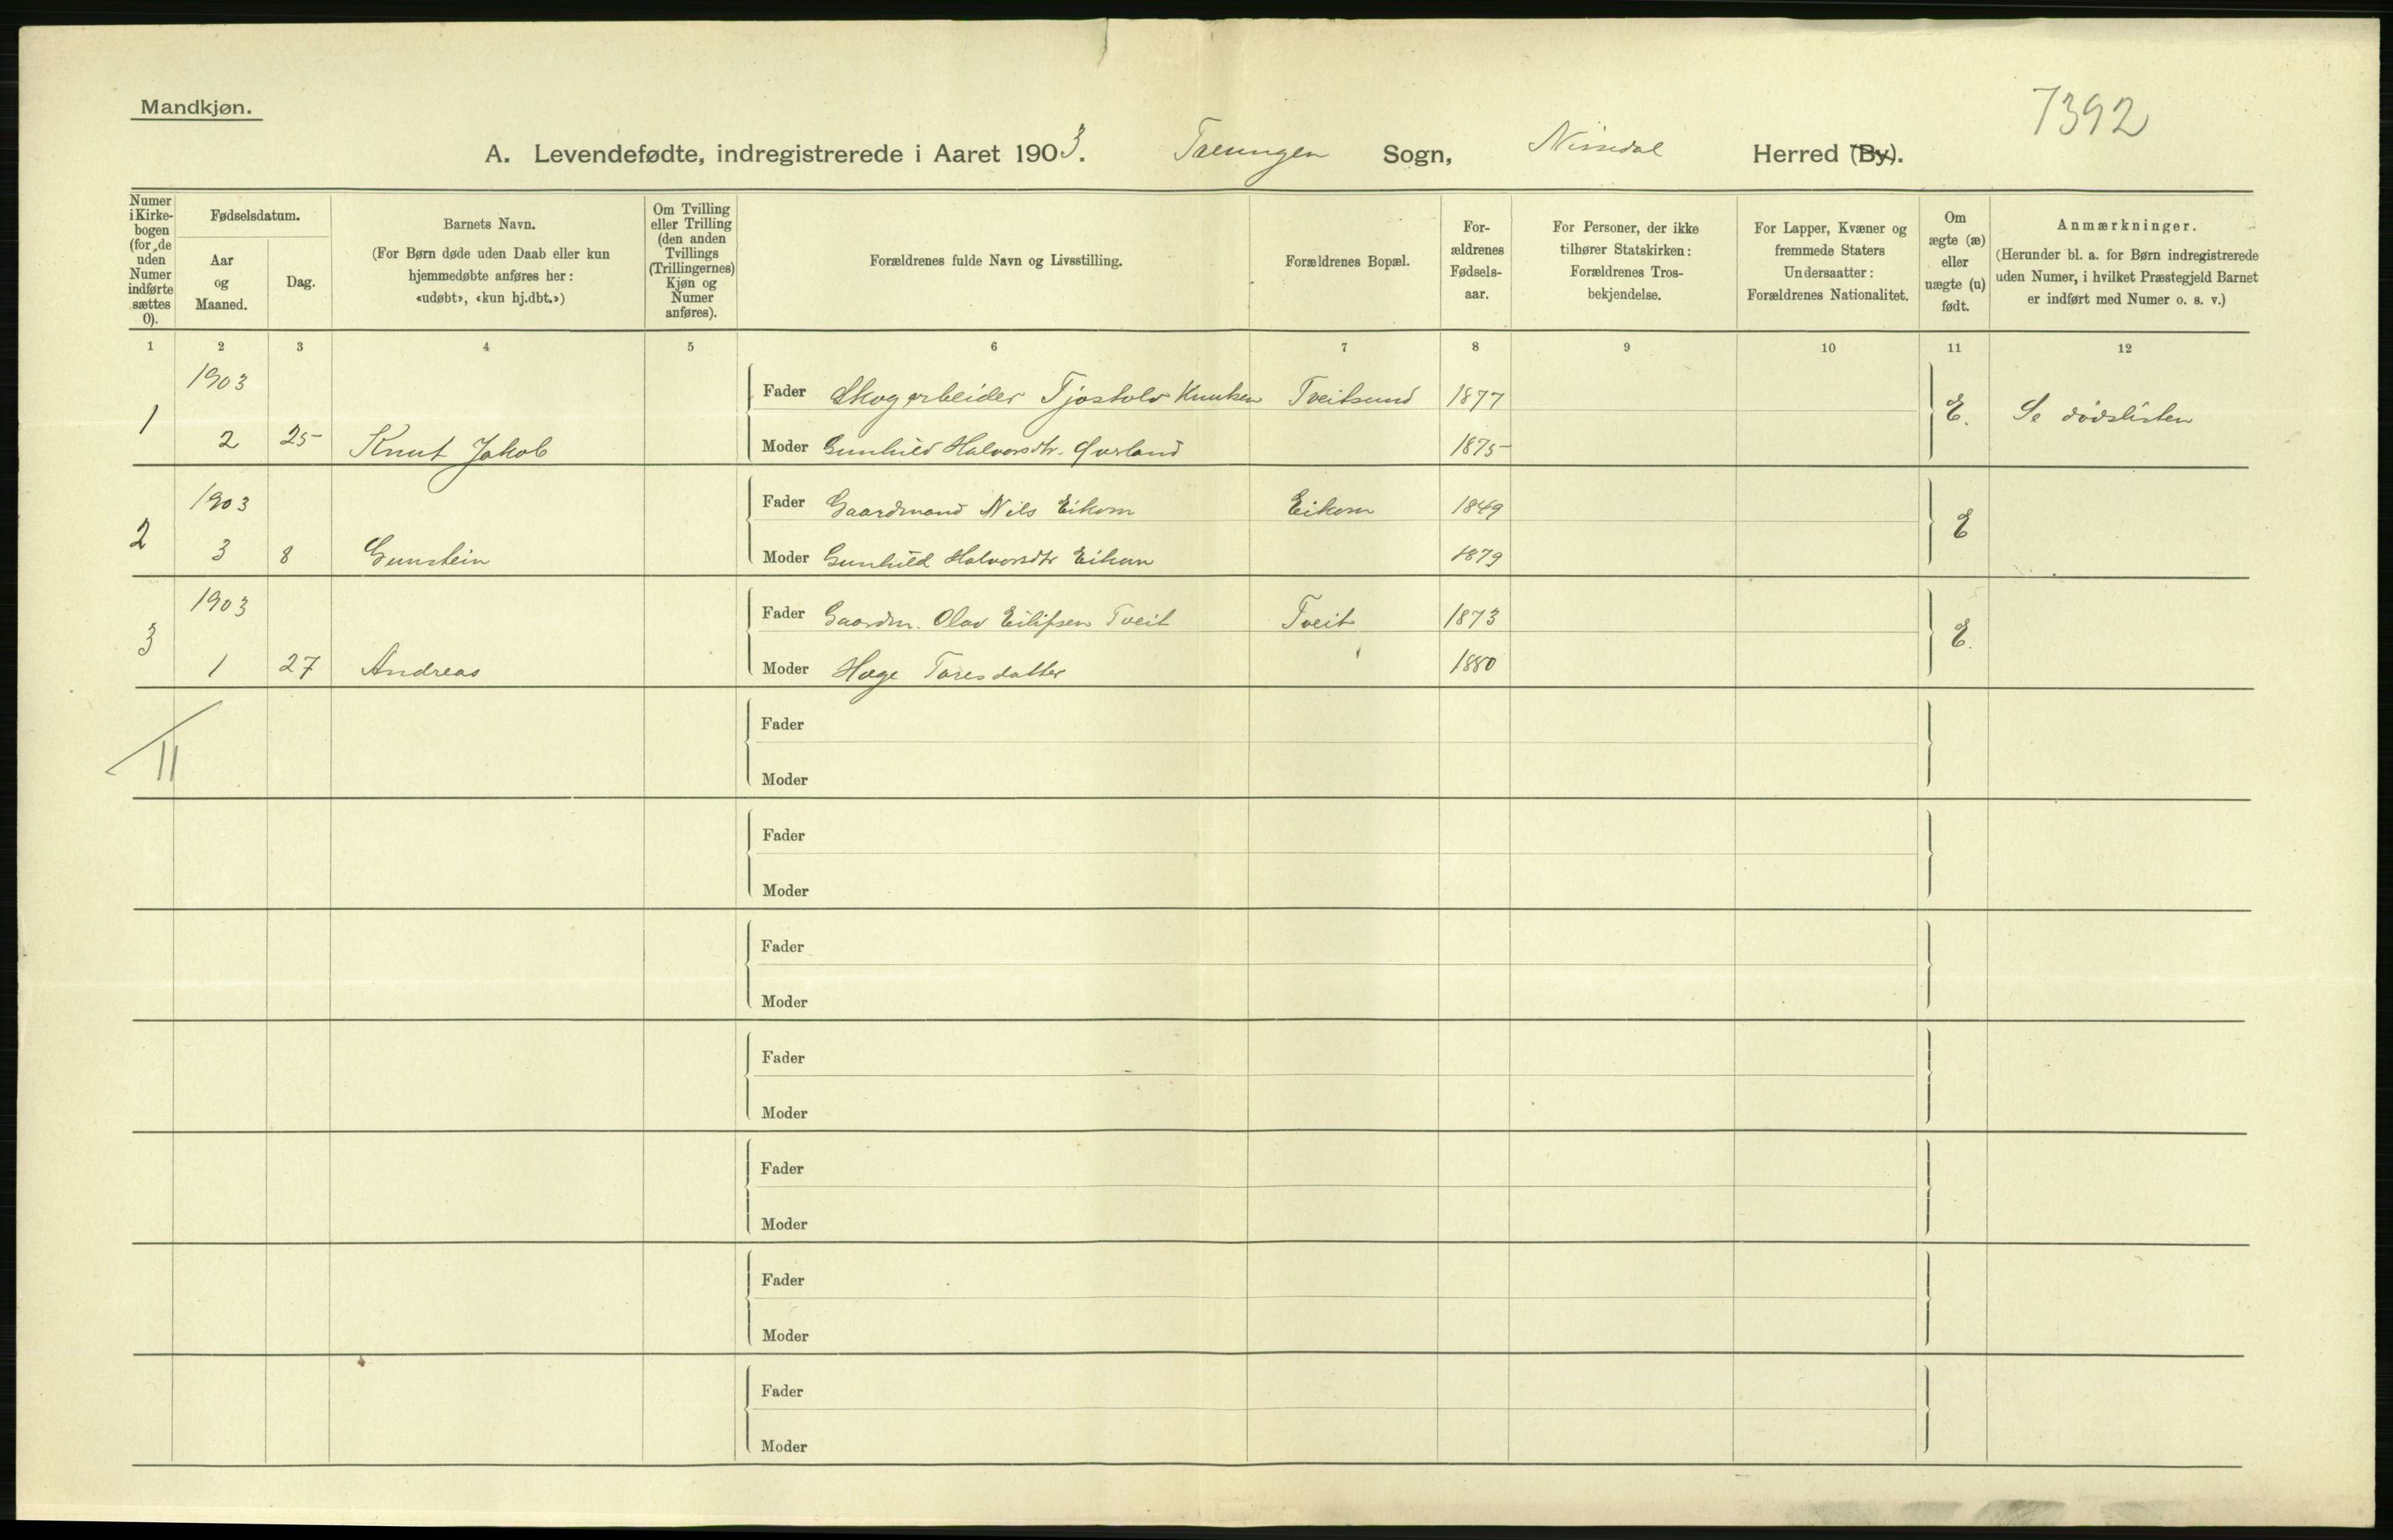 Mandkjøn.
7392
A. Levendefødte, indregistrerede i Aaret 1903. Treungen Sogn, Nissedal Herred (By).
Numer i Kirke-bogen (for de uden Numer indførte sættes 0).
Fødselsdatum.
Aar og Maaned.
Dag.
Barnets Navn.
(For Børn døde uden Daab eller kun hjemmedøbte anføres her: «udøbt», «kun hj.dbt.»)
Om Tvilling eller Trilling (den anden Tvillings (Trillingernes) Kjøn og Numer anføres).
Forældrenes fulde Navn og Livsstilling.
Forældrenes Bopæl.
For-ældrenes Fødsels-aar.
For Personer, der ikke tilhører Statskirken: Forældrenes Tros-bekjendelse.
For Lapper, Kvæner og fremmede Staters Undersaatter: Forældrenes Nationalitet.
Om ægte (æ) eller uægte (u) født.
Anmærkninger.
(Herunder bl. a. for Børn indregistrerede uden Numer, i hvilket Præstegjeld Barnet er indført med Numer o. s. v.)
1 2 3 4 5 6 7 8 9 10 11 12
1903
Fader Skogarbeider Tjostolv Knutsen Tveitsund 1877
1 E. Se dødslisten
2 25 Knut Jakob Moder Gunhild Halvorsdtr. Øverland 1875
1903 Fader Gaardmand Nils Eikom Eikom 1849
2 E
3 8 Gunstein Moder Gunhild Halvorsdtr Eikom 1879
1903 Fader Gaardm. Olav Eilifsen Tveit Tveit 1873
3 E.
1 27 Andreas Moder Hæge Taresdatter 1880
Fader
11
Moder
Fader
Moder
Fader
Moder
Fader
Moder
Fader
Moder
Fader
Moder
Fader
Moder